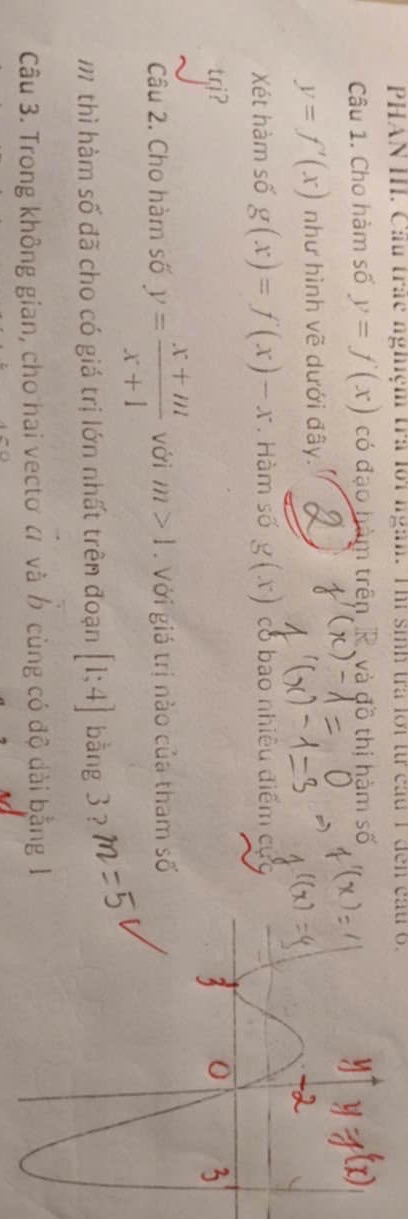 PHẦN III. Câu trắc nghiệm trả lời ngắn. Thí sinh trả lời từ câu 1 đến câu 6.
Câu 1. Cho hàm số y = f(x) có đạo hàm trên ℝ và đồ thị hàm số
y = f'(x) như hình vẽ dưới đây.
2
f'(x) - 1 = 0 => f'(x) = 1
f'(x) - 1 = 3
f'(x) = 4
Xét hàm số g(x) = f(x) - x. Hàm số g(x) có bao nhiêu điểm cực
trị?
y
y = f'(x)
2
3
0
3
Câu 2. Cho hàm số y = (x + m)/(x + 1) với m > 1. Với giá trị nào của tham số
m thì hàm số đã cho có giá trị lớn nhất trên đoạn [1;4] bằng 3 ?
m = 5
Câu 3. Trong không gian, cho hai vectơ a và b cùng có độ dài bằng 1